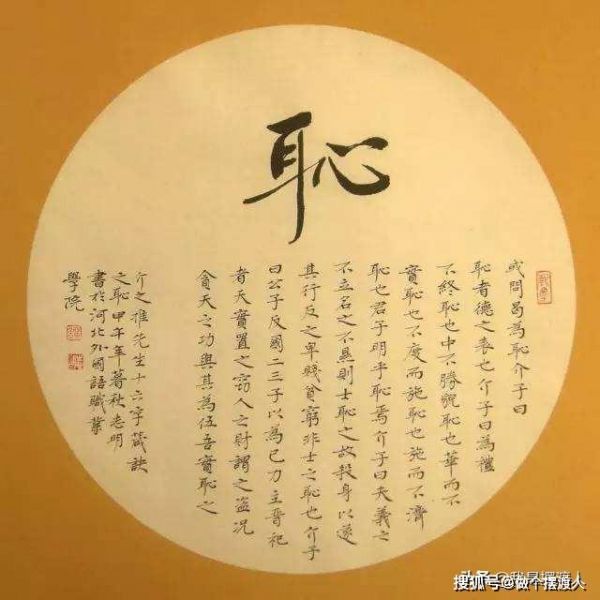 恥
或問曷為恥介子曰
恥者德之表也介子曰為禮
不終恥也中不勝貌恥也華而不
實恥也不度而施恥也施而不濟
恥也君子明乎恥焉介子曰夫義之
不立名之不顯則士恥之故殺身以遂
其行反之卑賤貧窮非士之恥也介子
曰公子反國二三子以為己力主晉祀
者天實置之竊人之財謂之盜況
貪天之功與其為伍吾實恥之
介之推先生十六字箴訣
之恥甲午年暮秋志明
書於河北外國語職業
學院
搜狐号@做个摆渡人